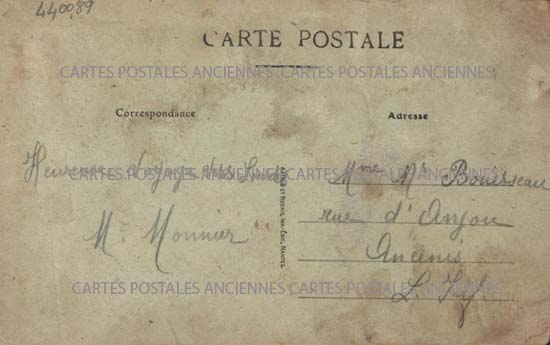 440089
CARTE POSTALE
CARTES POSTALES ANCIENNES CARTES POSTALES ANCIENNES
Correspondance
Adresse
voyage
CARTES POSTALES ANCIENNES CARTES POSTALES ANCIENNES
M. Monnier
Mme
rue d'Anjou
Ancenis
L. Inf.
CARTES POSTALES ANCIENNES CARTES POSTALES ANCIENNES